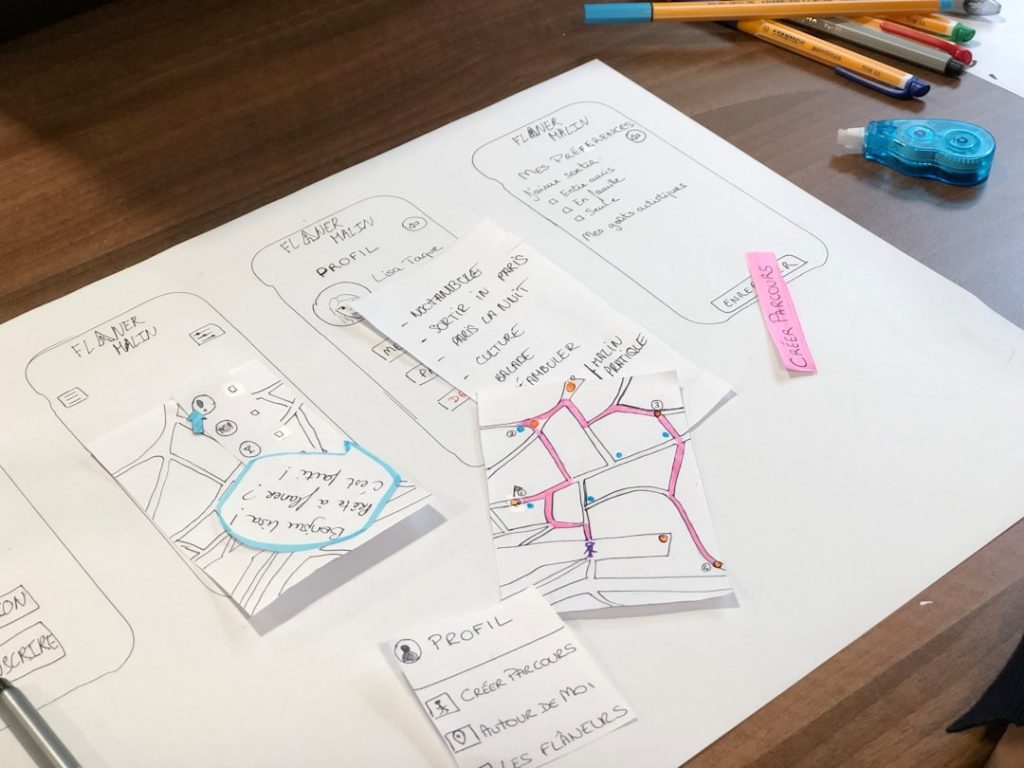 FLÂNER
MALIN
PROFIL
Lisa Taque
FLÂNER
MALIN
MES PRÉFÉRENCES
J'aime sortir:
Entre amis
En famille
Seule
Mes goûts artistiques
CRÉER PARCOURS
- NOCTAMBULE
- SORTIR IN PARIS
- PARIS LA NUIT
- CULTURE
BALADE
MALIN
PRATIQUE
FLÂNER
MALIN
Bonjour Lisa!
Prête à flâner?
C'est parti!
2
3
PROFIL
CRÉER PARCOURS
AUTOUR DE MOI
LES FLÂNEURS